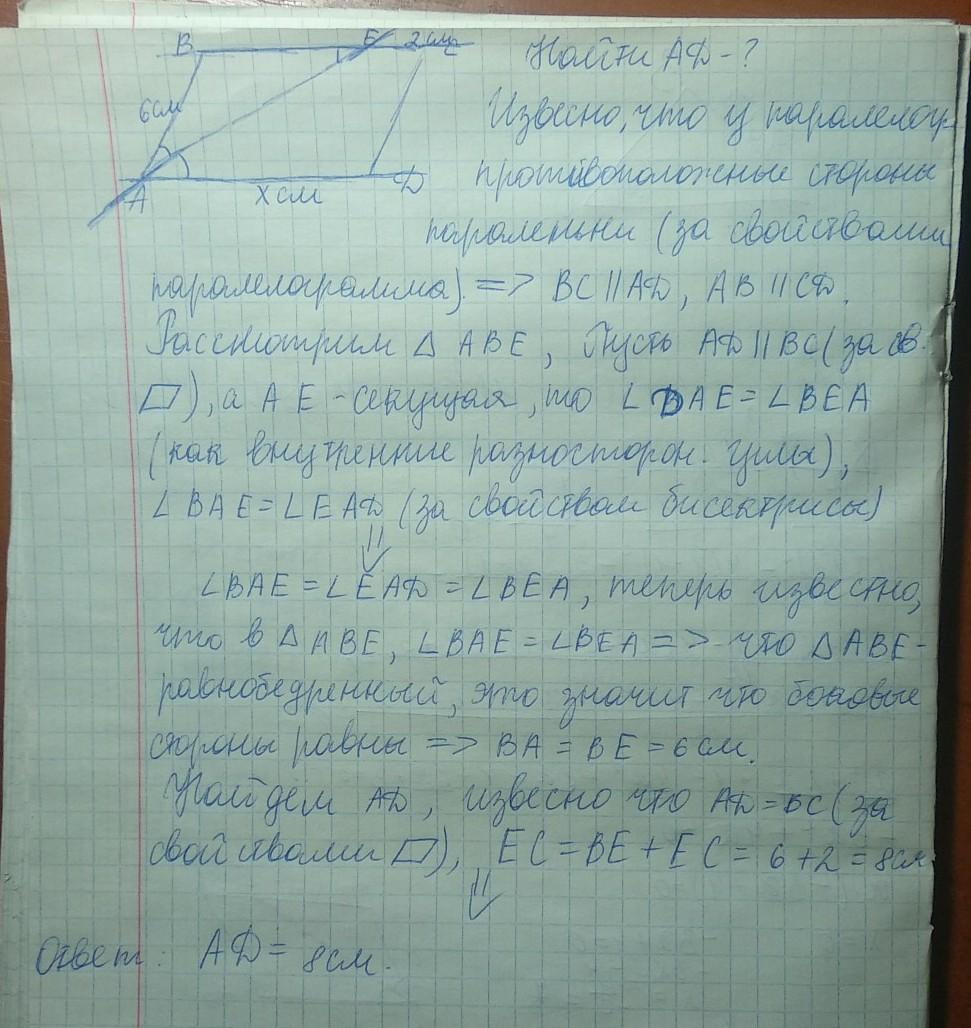 B E 2см C
Найти AD - ?
6см
Извесно, что у паралелогр
A x см D
противоположные стороны
паралельни (за свойствами
паралелограмма) => BC || AD, AB || CD.
Рассмотрим △ ABE, Пусть AD || BC (за св.
▱), а AE - секущая, то ∠ DAE = ∠BEA
(как внутренние разносторон. углы),
∠ BAE = ∠ EAD (за свойством бисектрисы)
⇓
∠BAE = ∠EAD = ∠BEA, теперь известно,
что в △ ABE, ∠BAE = ∠BEA => что △ ABE -
равнобедренный, это значит что боковые
стороны равны => BA = BE = 6 см.
Найдем AD, извесно что AD = BC (за
свойствами ▱), EC = BE + EC = 6 + 2 = 8см
⇓
Ответ: AD = 8см.